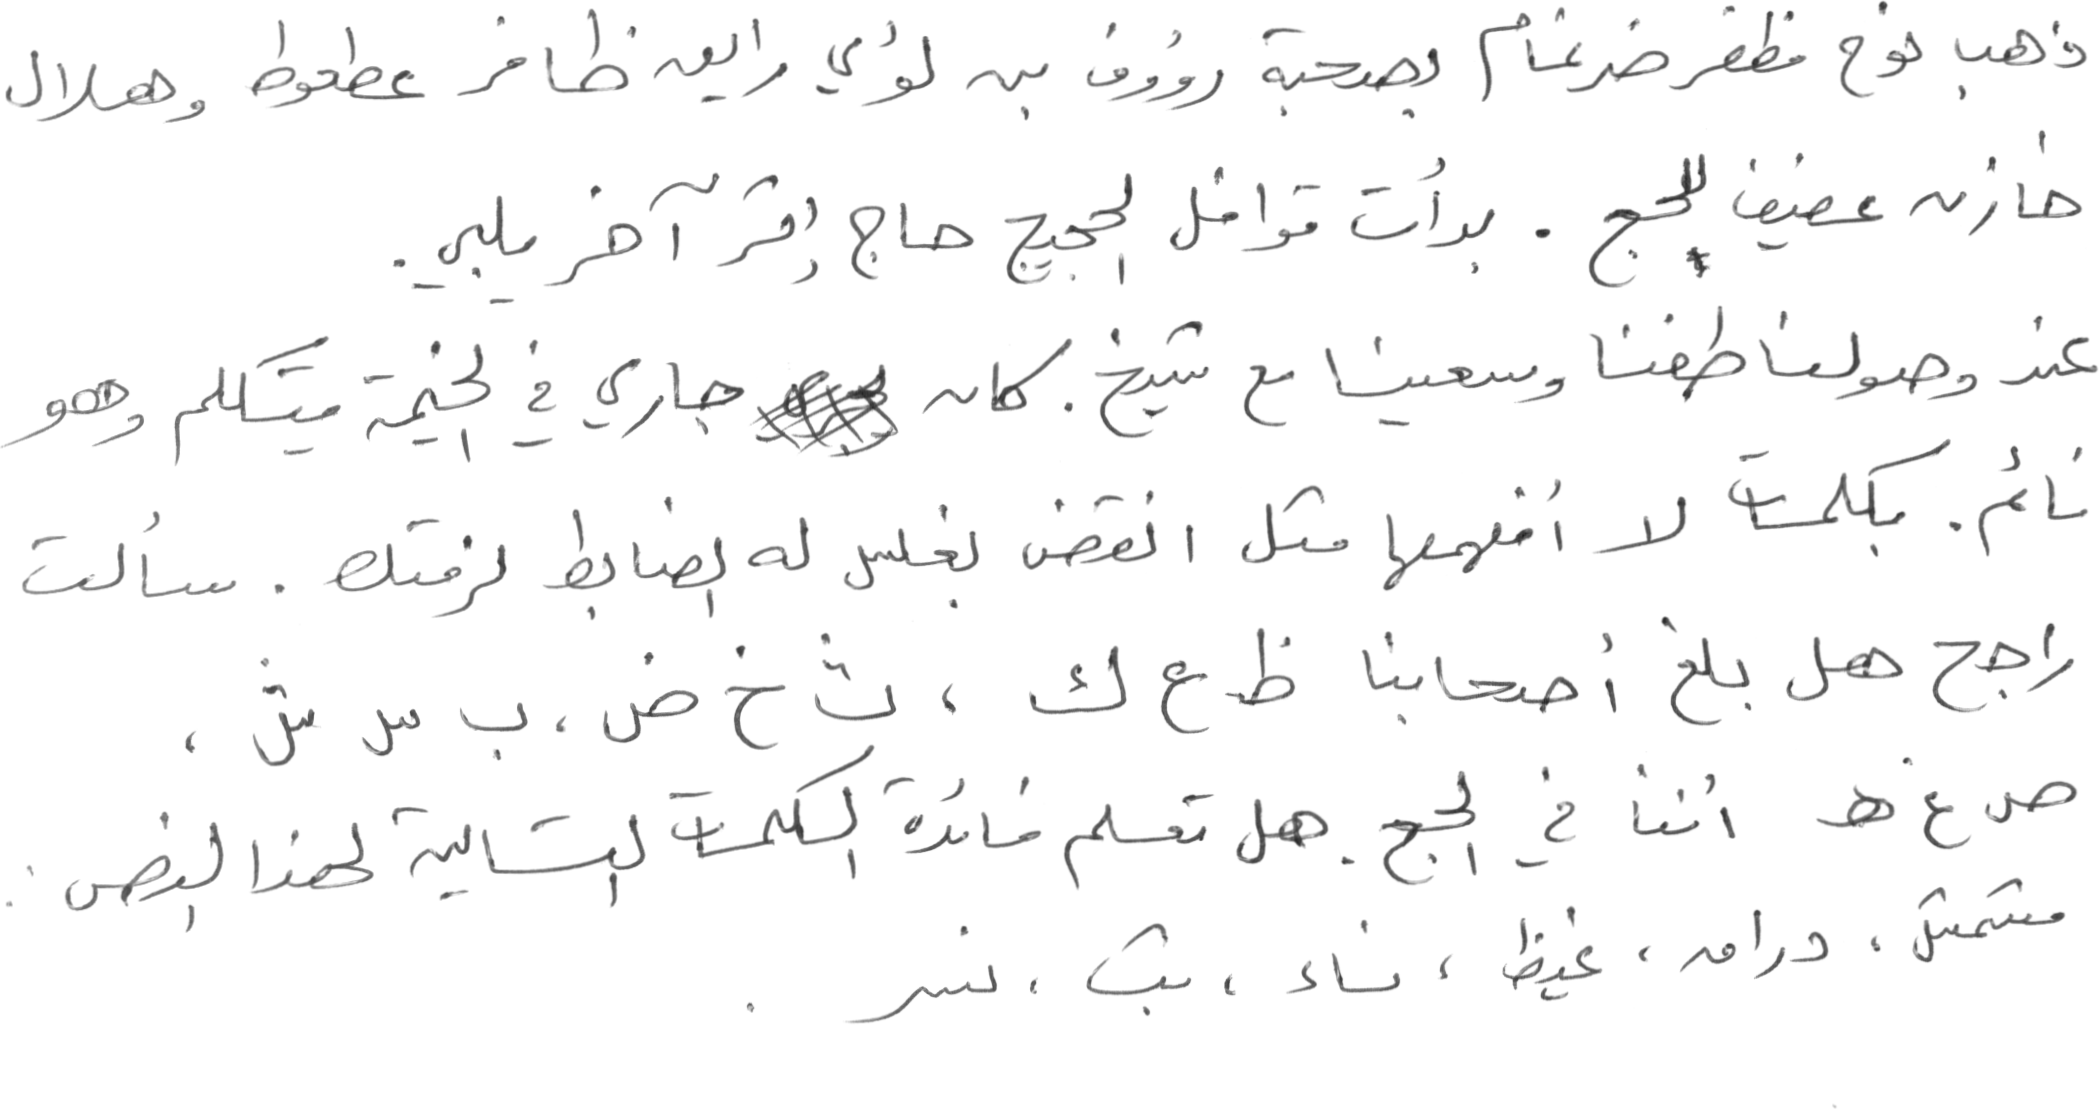 ذهب نوح مظفر ضرغام بصحبة رؤوف بن لؤي رايق ظافر عطعوط وهلال
خازن عفيف للحج . بدأت قوافل الحجيج حاج إثر آخر يلبي .
عند وصولنا طفنا وسعينا مع شيخ . كان جاري في الخيمة يتكلم وهو
نائم . بكلمات لا أفهمها مثل انقض بغلس له الضابط لزقتك . سألت
راجح هل بلغ أصحابنا ظ ع ك ، ث خ ض ، ب س ش ،
ص غ هـ أننا في الحج . هل تعلم فائدة الكلمات التالية لهذا النص :
مشمش ، دراق ، غيظ ، ناء ، بث ، نسر .